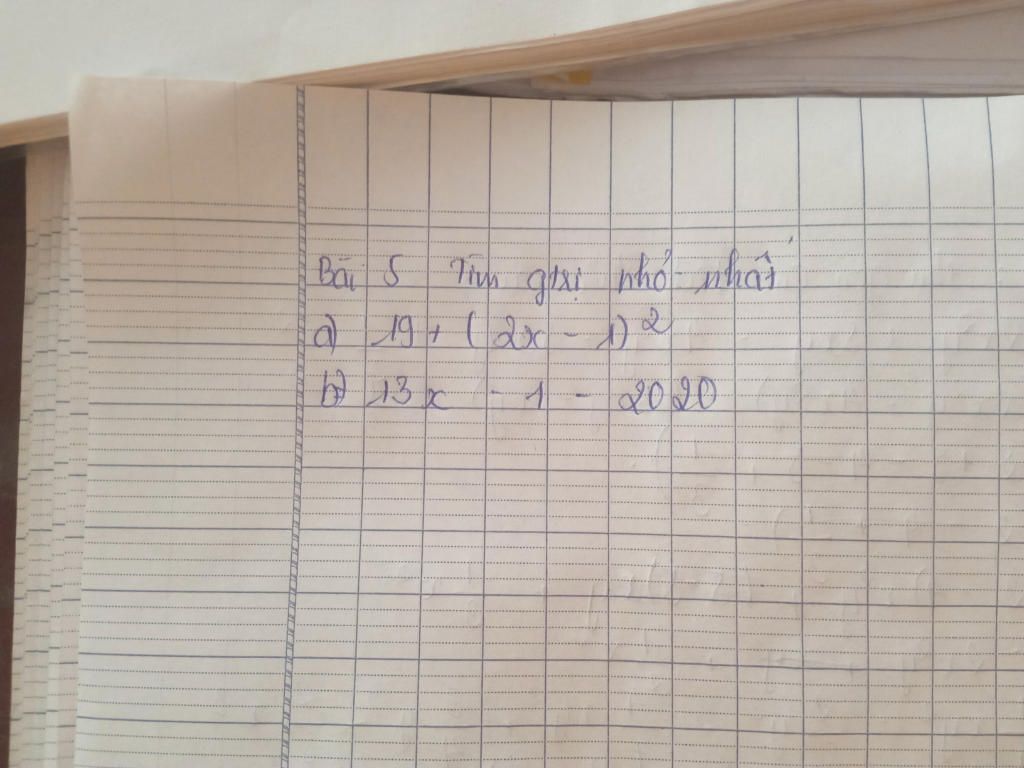 Bài 5 Tìm gtrị nhỏ nhất
a) 19 + ( 2x - 1)²
b) 13x - 1 - 2020